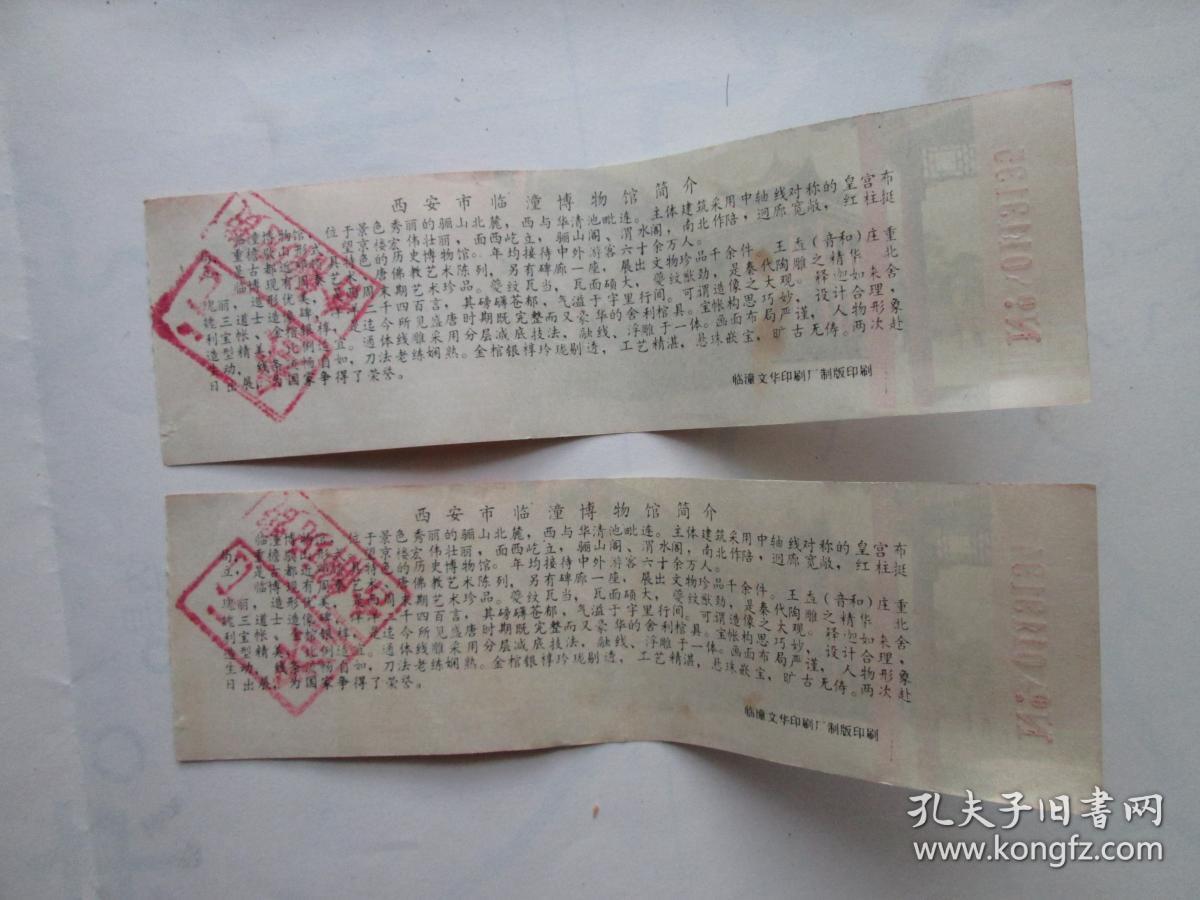 西安市临潼博物馆简介
临潼博物馆，位于景色秀丽的骊山北麓，西与华清池毗连。主体建筑采用中轴线对称的皇宫布
局，重檐歇山 望京楼宏伟壮丽，面西屹立，骊山阁、渭水阁，南北作陪，迴廊宽敞，红柱挺
立，是古都 特色的历史博物馆。年均接待中外游客六十余万人。
临博现有 唐佛教艺术陈列，另有碑廊一座，展出文物珍品千余件。王盉（音和）庄重
瑰丽，造形优美， 周末期艺术珍品。夔纹瓦当，瓦面硕大，夔纹猷劲，是秦代陶雕之精华。北
魏道士造像碑， 二千四百言，其磅礴苍郁，气溢于字里行间。可谓造像之大观。释迦如来舍
利三宝帐、金棺银椁，是迄今所见盛唐时期既完整而又豪华的舍利棺具。宝帐构思巧妙，设计合理，
造型精美， 例 宜。通体线雕采用分层减底技法，融线、浮雕于一体。画面布局严谨，人物形象
生动，线条流畅自如，刀法老练娴熟。金棺银椁玲珑剔透，工艺精湛，悬珠嵌宝，旷古无俦。两次赴
日出展，为国家争得了荣誉。
临潼文华印刷厂制版印刷
西安市临潼博物馆简介
临潼博物馆，位于景色秀丽的骊山北麓，西与华清池毗连。主体建筑采用中轴线对称的皇宫布
局，重檐歇山 望京楼宏伟壮丽，面西屹立，骊山阁、渭水阁，南北作陪，迴廊宽敞，红柱挺
立，是古都近 具有特色的历史博物馆。年均接待中外游客六十余万人。
临博现有 唐佛教艺术陈列，另有碑廊一座，展出文物珍品千余件。王盉（音和）庄重
瑰丽，造形优美， 末期艺术珍品。夔纹瓦当，瓦面硕大，夔纹猷劲，是秦代陶雕之精华。北
魏道士造像碑， 千四百言，其磅礴苍郁，气溢于字里行间。可谓造像之大观。释迦如来舍
利三宝帐、金棺银椁，是迄今所见盛唐时期既完整而又豪华的舍利棺具。宝帐构思巧妙，设计合理，
造型精美，比例适宜。通体线雕采用分层减底技法，融线、浮雕于一体。画面布局严谨，人物形象
生动，线条流畅自如，刀法老练娴熟。金棺银椁玲珑剔透，工艺精湛，悬珠嵌宝，旷古无俦。两次赴
日出展，为国家争得了荣誉。
临潼文华印刷厂制版印刷
孔夫子旧书网
www.kongfz.com